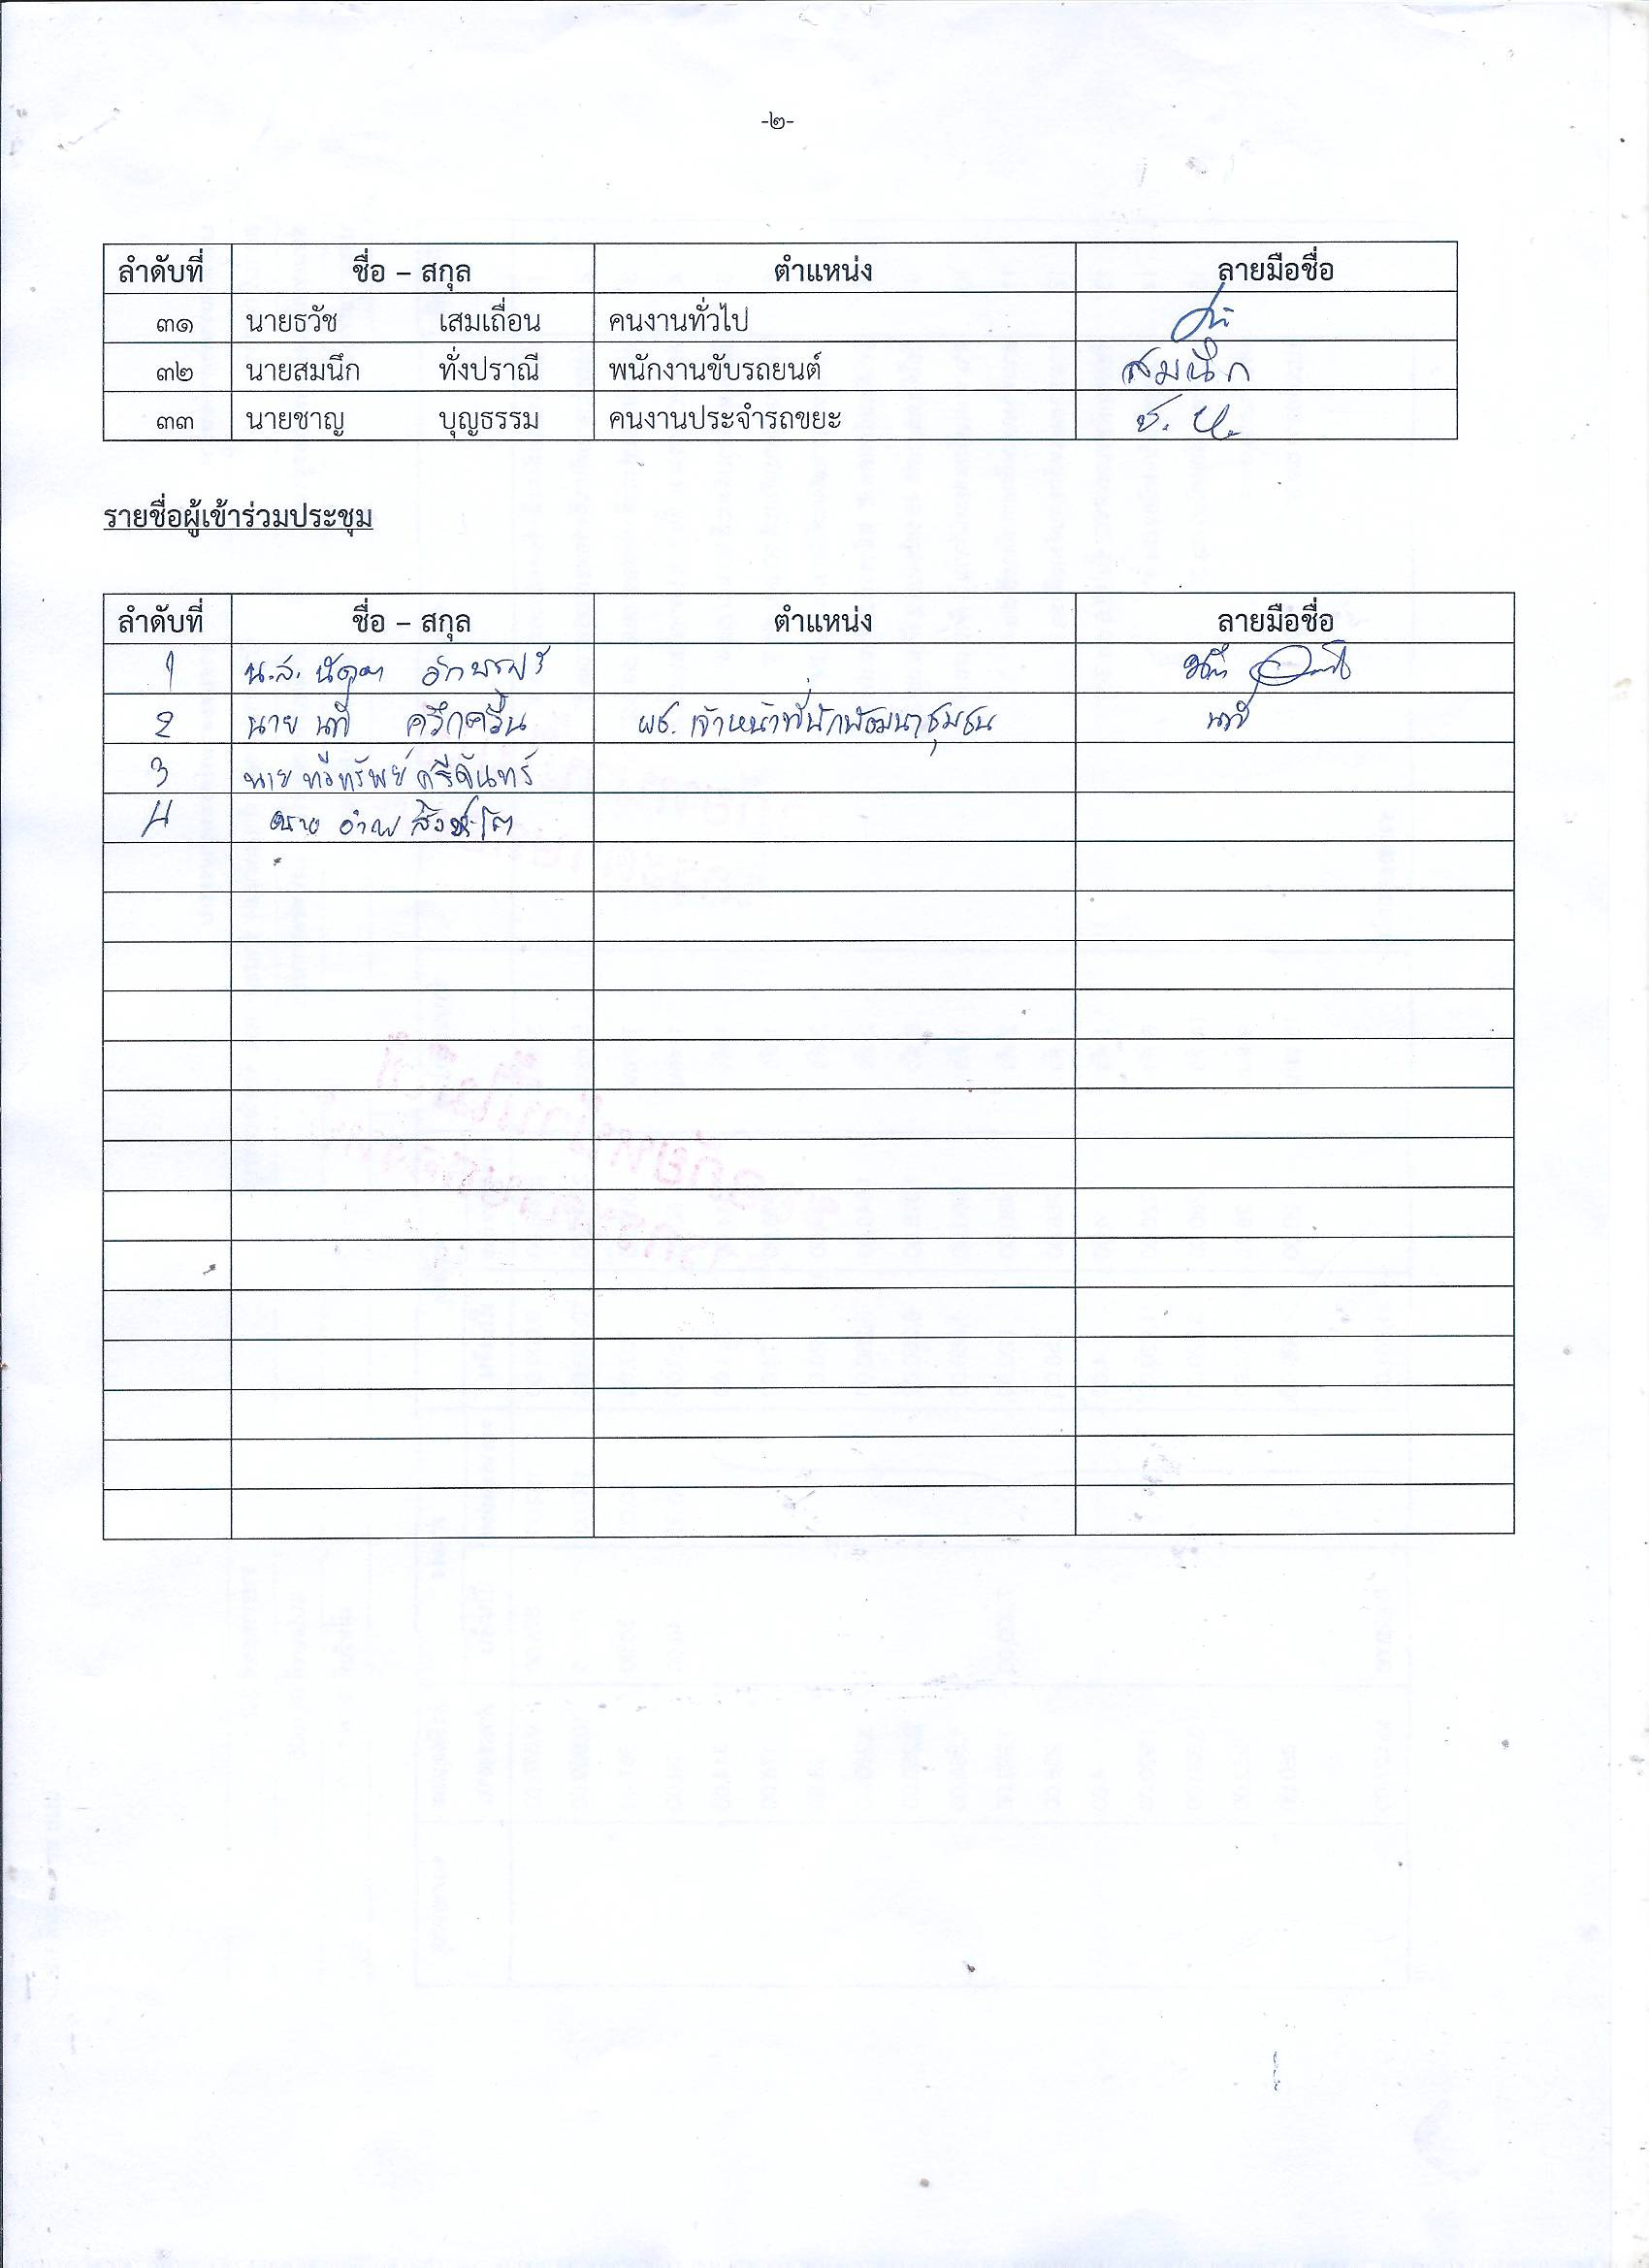 -๒-
ลำดับที่ ชื่อ – สกุล ตำแหน่ง ลายมือชื่อ
๓๑ นายธวัช เสมเถื่อน คนงานทั่วไป
๓๒ นายสมนึก ทั่งปราณี พนักงานขับรถยนต์ สมนึก
๓๓ นายชาญ บุญธรรม คนงานประจำรถขยะ ช. บ.
รายชื่อผู้เข้าร่วมประชุม
ลำดับที่ ชื่อ – สกุล ตำแหน่ง ลายมือชื่อ
1 น.ส.
2 นาย นที ครึกครื้น ผช. เจ้าหน้าที่นักพัฒนาชุมชน นที
3 นาย ทวีทรัพย์ ศรีจันทร์
4 นาย สิงห์โต